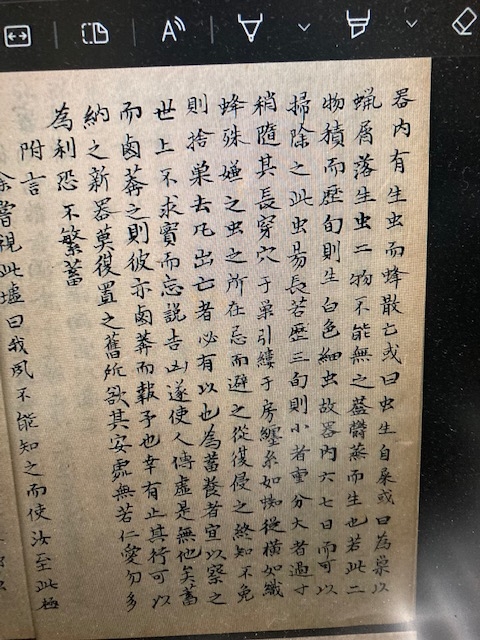 器内有生虫而蜂散亡或曰虫生自屎或曰為巢以
蝋屑落生虫二物不能無之蓋欝蒸而生也若此二
物積而歴旬則生白色細虫故器内六七日而可以
掃除之此虫易長若歴三旬則小者重分大者過寸
稍隨其長穿穴于巢引縷于房纏糸如蜘從横如織
蜂殊嫌之虫之所在忌而避之從復侵之終知不免
則捨巢去凡出亡者必有以也為蓄養者宜以察之
世上不求實而忘説吉凶遂使人傳虚是無他矣蓄
而鹵莾之則彼亦鹵莾而報予也幸有止其行可以
納之新器莫復置之舊所欲其安處無若仁愛勿多
為利恐不繁蓄
附言
余嘗視此墟曰我夙不能知之而使汝至此極